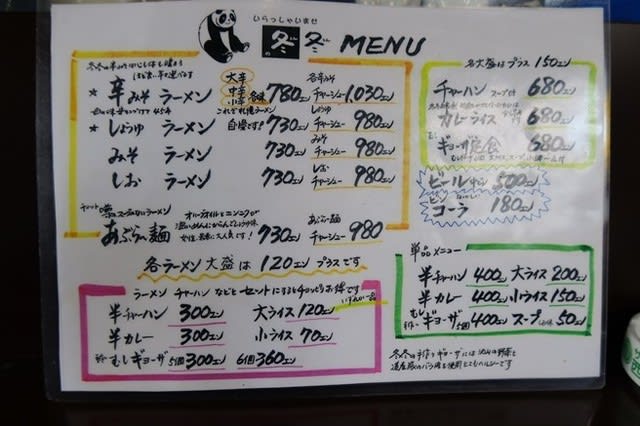 いらっしゃいませ
冬冬 MENU
★ 辛みそラーメン 大辛 中辛 小辛 各味 780エン 各辛みそチャーシュー 1,030エン
★ しょうゆラーメン 自慢です! 730エン しょうゆチャーシュー 980エン
みそラーメン 730エン みそチャーシュー 980エン
しおラーメン 730エン しおチャーシュー 980エン
スープのないラーメン オリーブオイルとニンニクが
あぶら〜麺 730エン あぶら〜麺チャーシュー 980
各ラーメン大盛は120エンプラスです
ラーメンチャーハンなどとセットにするとチョッピリお得です
いずれか一品
半チャーハン 300エン 大ライス 120エン
半カレー 300エン 小ライス 70エン
むしギョーザ 5個 300エン 6個 360エン
各大盛はプラス150エン
チャーハン スープ付 680エン
カレーライス 680エン
むしギョーザ定食 680エン
ビール 500エン
ビンコーラ 180エン
単品メニュー
半チャーハン 400エン 大ライス 200エン
半カレー 400エン 小ライス 150エン
むしギョーザ 5個 400エン スープ 50エン
冬冬の手作りギョーザには